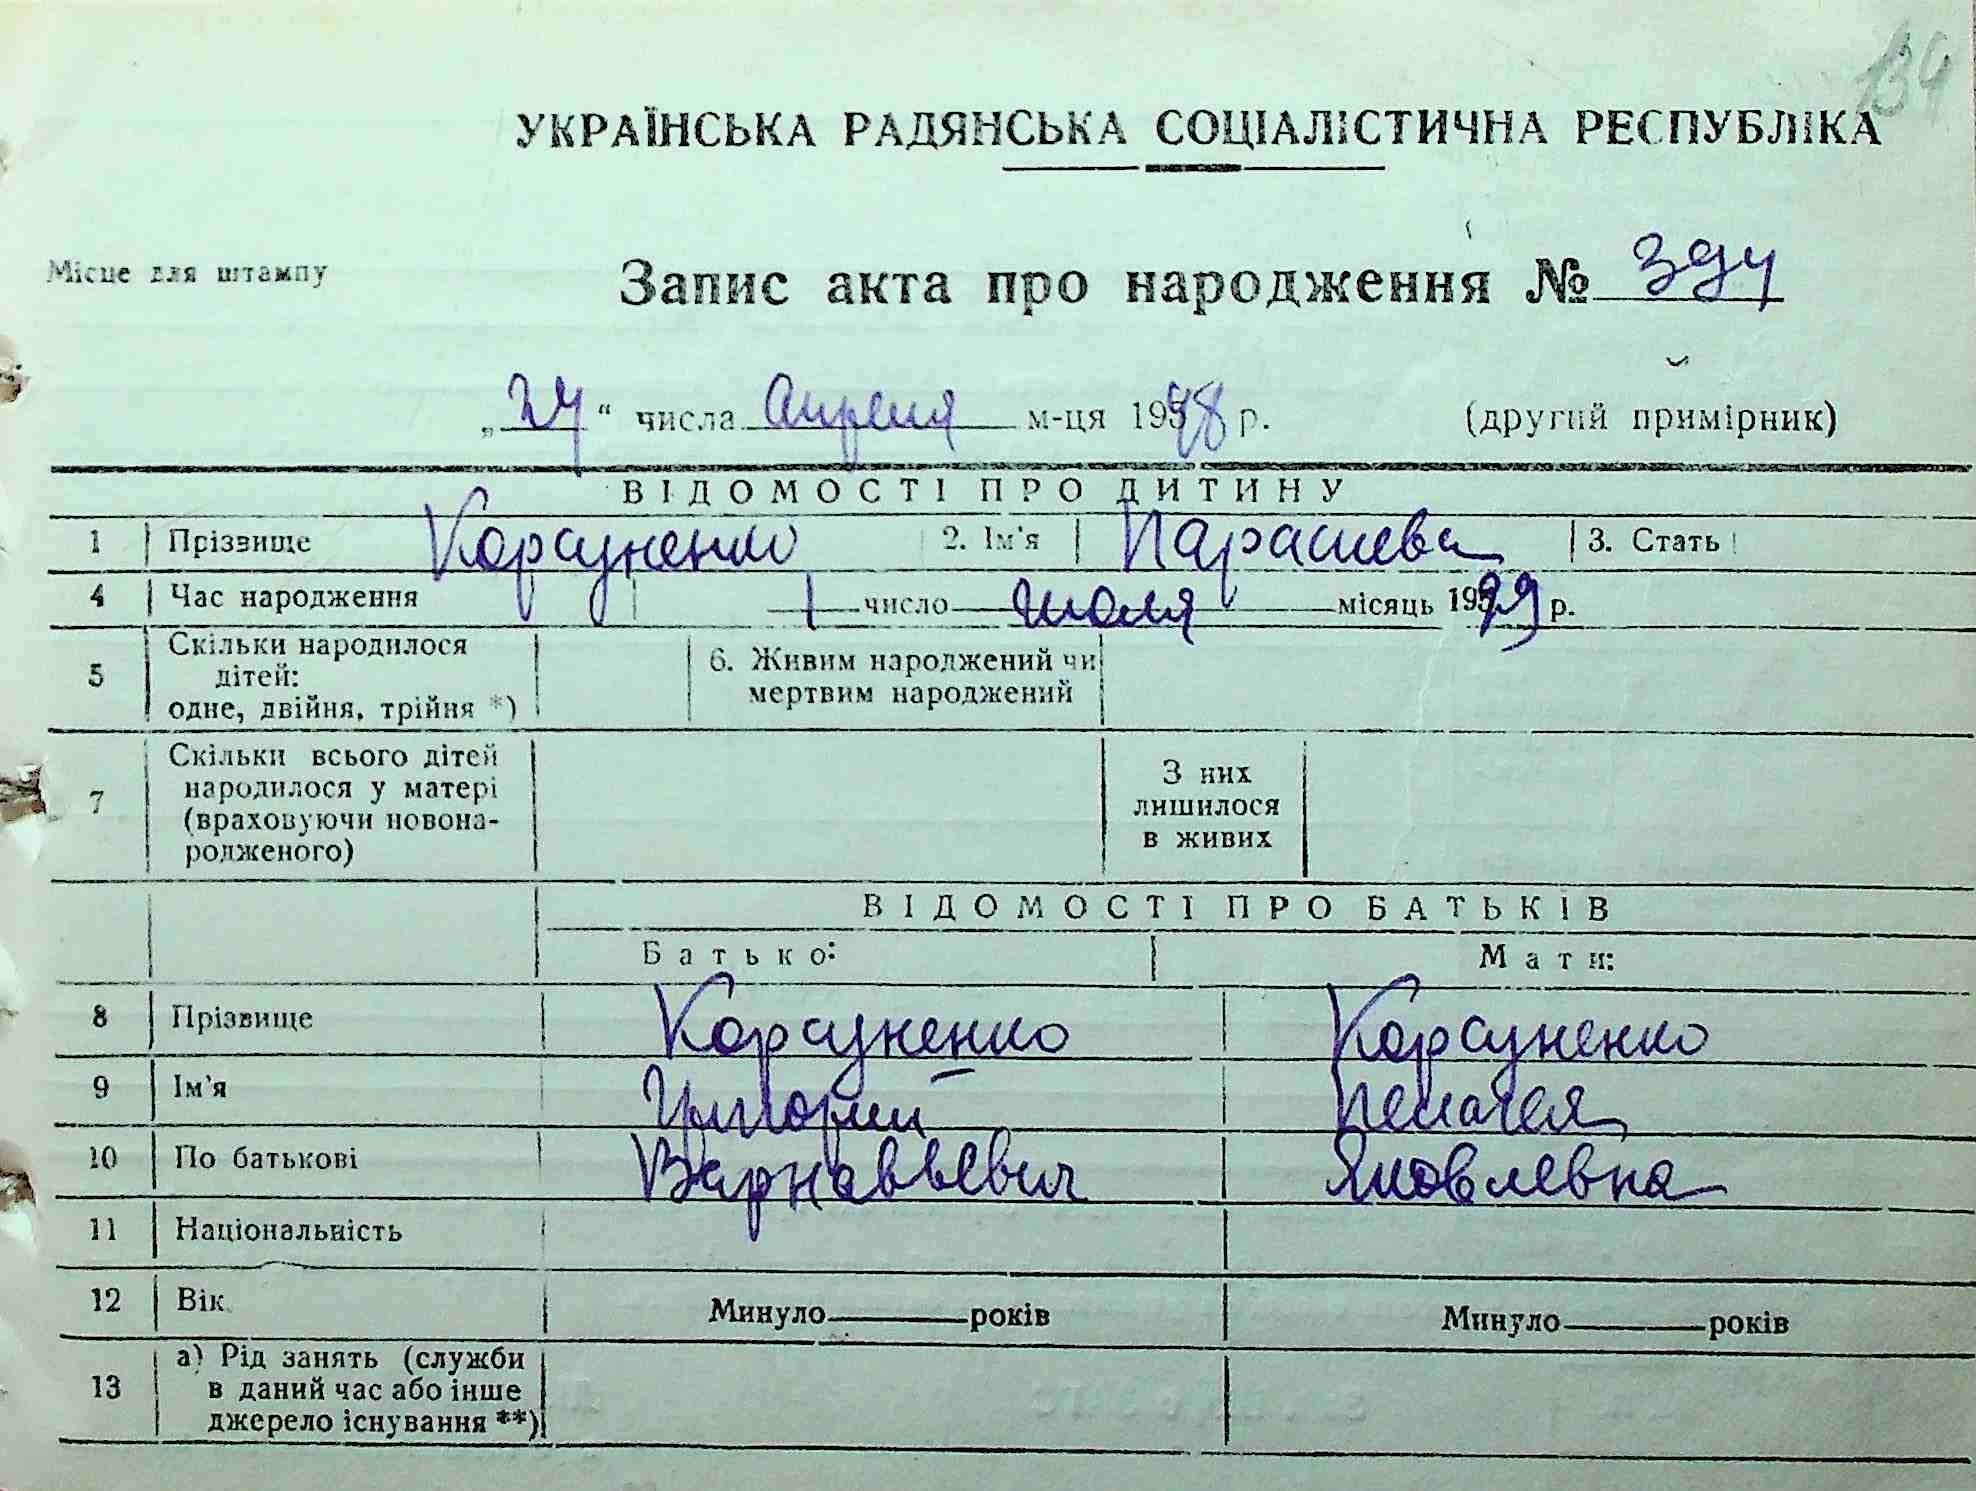 134
УКРАЇНСЬКА РАДЯНСЬКА СОЦІАЛІСТИЧНА РЕСПУБЛІКА
Місце для штампу
Запис акта про народження № 394
„24" числа Апреля м-ця 1948 р. (другий примірник)
ВІДОМОСТІ ПРО ДИТИНУ
1 Прізвище Корсуненко 2. Ім'я Параскева 3. Стать
4 Час народження 1 число июля місяць 1929 р.
5 Скільки народилося дітей: одне, двійня, трійня *) 6. Живим народжений чи мертвим народжений
7 Скільки всього дітей народилося у матері (враховуючи новона-родженого) З них лишилося в живих
ВІДОМОСТІ ПРО БАТЬКІВ
Батько: Мати:
8 Прізвище Корсуненко Корсуненко
9 Ім'я Григорий Пелагея
10 По батькові Варнавьевич Яковлевна
11 Національність
12 Вік Минуло ___ років Минуло ___ років
13 а) Рід занять (служби в даний час або інше джерело існування **)